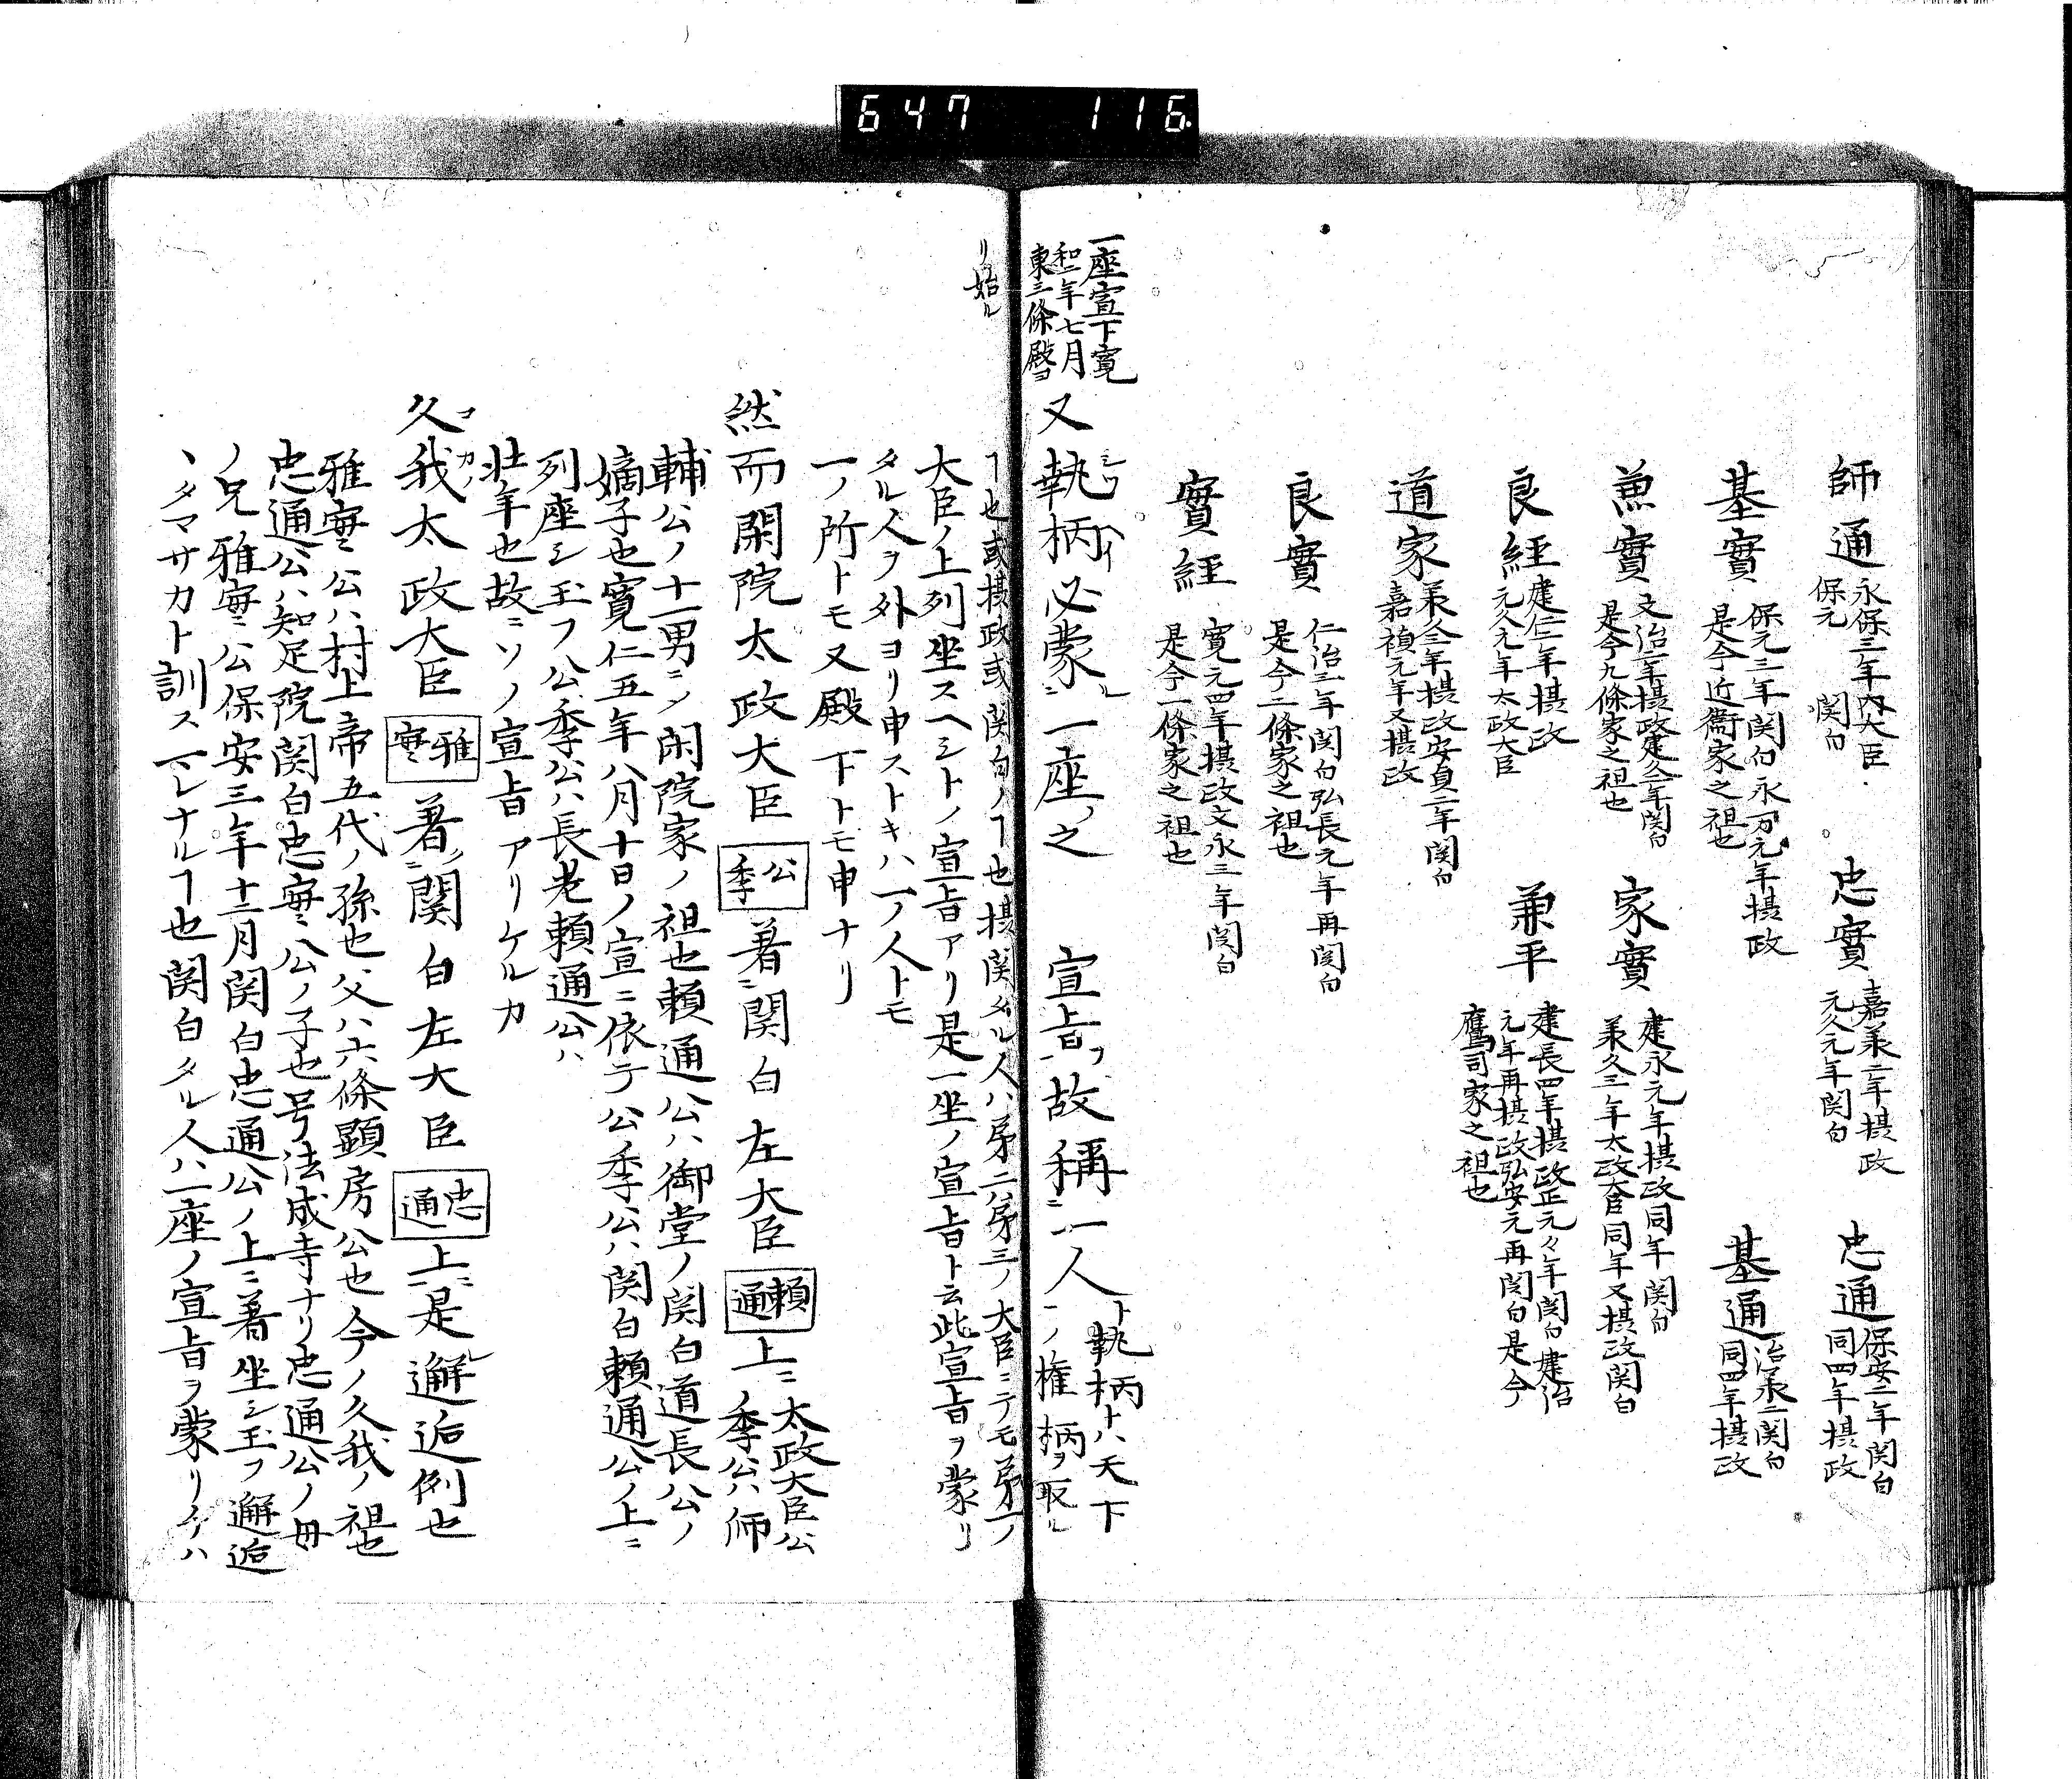 647 116
師通 永保三年内大臣
保元 関白
忠實 嘉承二年摂政
元久元年関白
忠通 保安二年関白
同四年摂政
基實 保元三年関白永万元年摂政
是今近衞家之祖也
基通 治承二関白
同四年摂政
兼實 文治二年摂政建久二年関白
是今九條家之祖也
家實 建永元年摂政同年関白
承久三年太政大臣同年又摂政関白
良経 建仁二年摂政
元久元年太政大臣
兼平 建長四年摂政正元々年関白建治
元年再摂政弘安元再関白是今
鷹司家之祖也
道家 承久三年摂政安貞二年関白
嘉禎元年又摂政
良實 仁治三年関白弘長元年再関白
是今二條家之祖也
實経 寛元四年摂政文永二年関白
是今一條家之祖也
一座宣下寛
和二年七月
東三條殿ヨ
リ始ル
又執柄必蒙ル一座ノ之 宣旨ヲ故稱ニ一人ト 執柄トハ天下
一ノ権柄ヲ取ル
ヿ也或摂政或関白ノヿ也摂関タル人ハ第二第三ノ大臣ニテモ第一ノ
大臣ノ上列坐スヘシトノ宣旨アリ是一坐ノ宣旨ト云此宣旨ヲ蒙リ
タル人ヲ外ヨリ申ストキハ一ノ人トモ
一ノ所トモ又殿下トモ申ナリ
然而閑院太政大臣 公季 著ニ関白左大臣 頼通 上ニ 太政大臣公
季公ハ師
輔公ノ十一男ニノ閑院家ノ祖也頼通公ハ御堂ノ関白道長公ノ
嫡子也寛仁五年八月十日ノ宣ニ依テ公季公ハ関白頼通公ノ上ニ
列座シ玉フ公季公ハ長老頼通公ハ
壮年也故ニソノ宣旨アリケルカ
久我太政大臣 雅實 著ニ関白左大臣 忠通 上ニ是邂逅例也
雅實公ハ村上帝五代ノ孫也父ハ六條顕房公也今ノ久我ノ祖也
忠通公ハ知足院関白忠實公ノ子也号法成寺ナリ忠通公ノ母
ノ兄雅實公保安三年十二月関白忠通公ノ上ニ著坐シ玉フ邂逅
ヽタマサカト訓スマレナルヿ也関白タル人ハ一座ノ宣旨ヲ蒙リ玉ハ